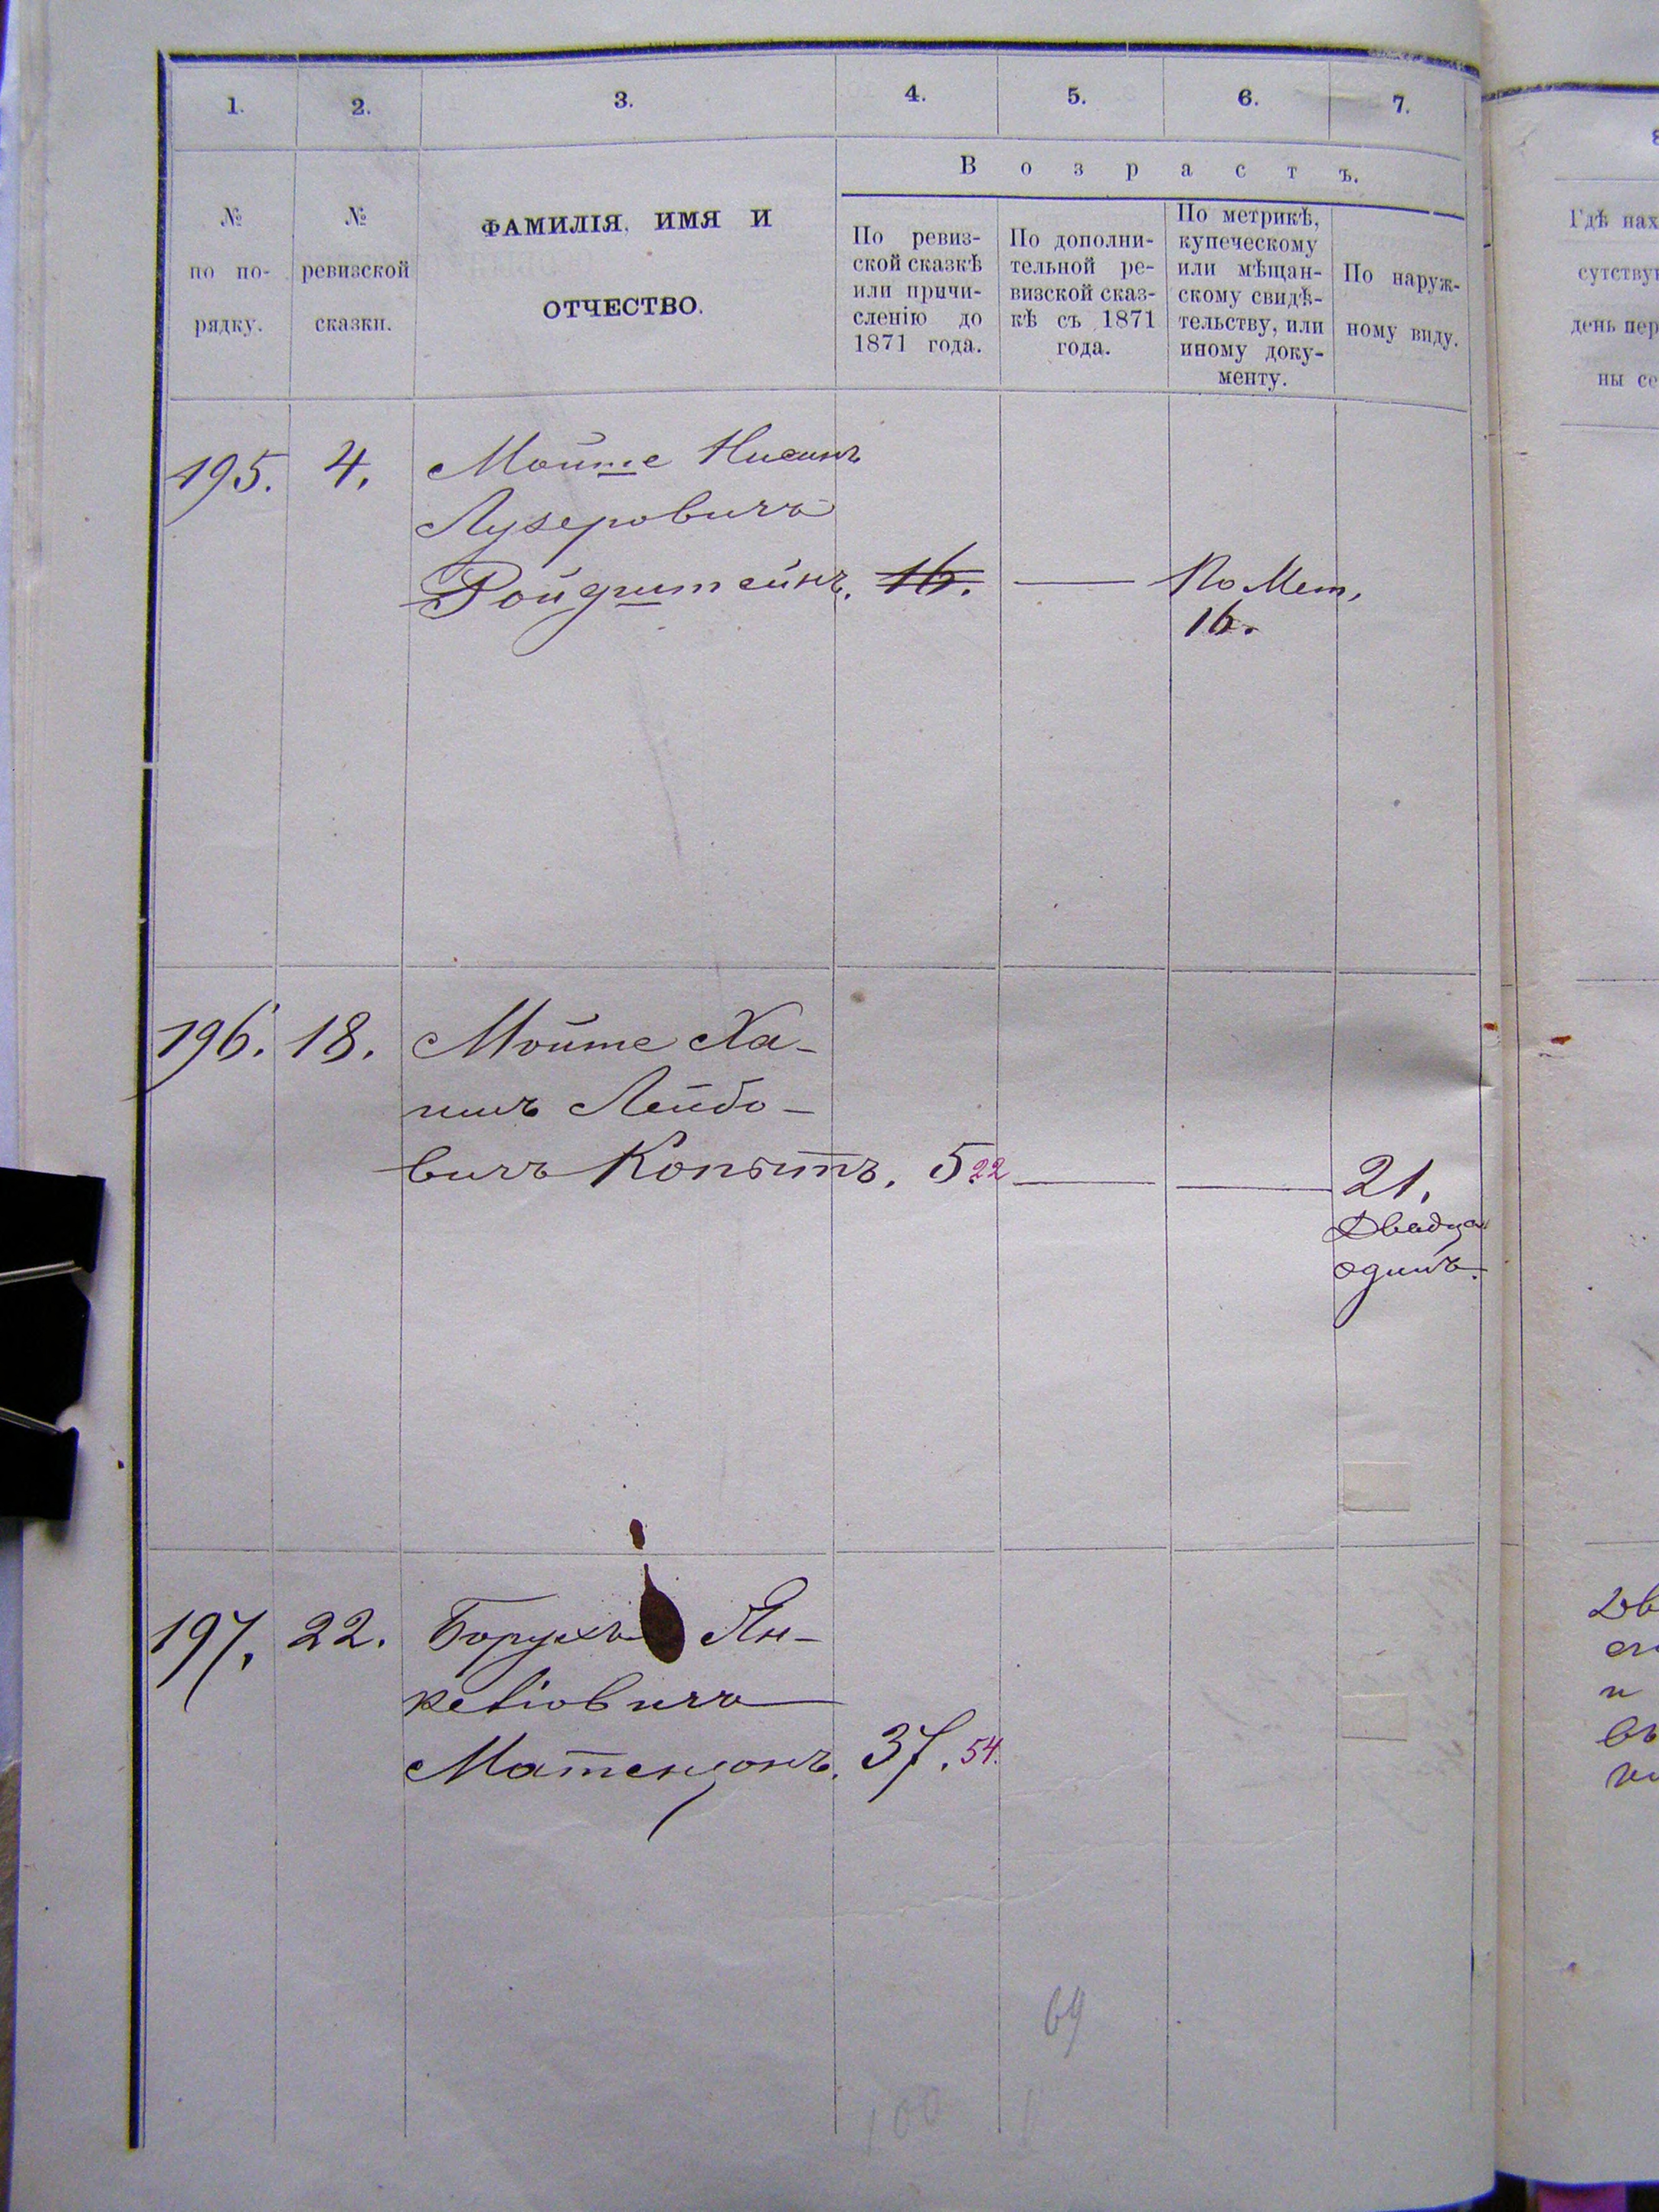 1. 2. 3. 4. 5. 6. 7.
Возрастъ.
№ по по-рядку.
№ ревизской сказки.
ФАМИЛІЯ, ИМЯ И
ОТЧЕСТВО.
По ревиз-
ской сказкѣ
или причи-
сленію до
1871 года.
По дополни-
тельной ре-
визской сказ-
кѣ съ 1871
года.
По метрикѣ,
купеческому
или мѣщан-
скому свидѣ-
тельству, или
иному доку-
менту.
По наруж-
ному виду.
Гдѣ нах
сутствую
день пер
ны се
195. 4. Мойше Нисинъ
Лузеровичъ
Ройдштейнъ. 16. — По Мет,
16.
196. 18. Мойше Ха-
имъ Лейбо-
вичъ Копытъ. 5. 22 — — 21.
Двадца
одинъ.
197. 22. Борухъ Ян-
келіовичъ
Матензонъ. 37. 54.
69
100